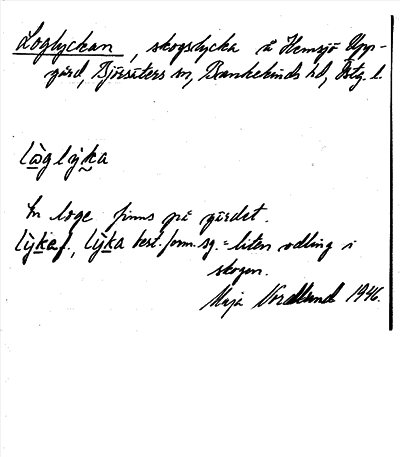 Loglyckan, skogslycka å Hemsjö Upp-
gård, Björsäters sn, Bankekinds hd, Östg. l.
lò̱gly̆ḵa
En loge finns på gärdet.
lỳḵa f., lỳḵa best. form. sg. = liten odling i
skogen.
Maja Nordlund 1946.